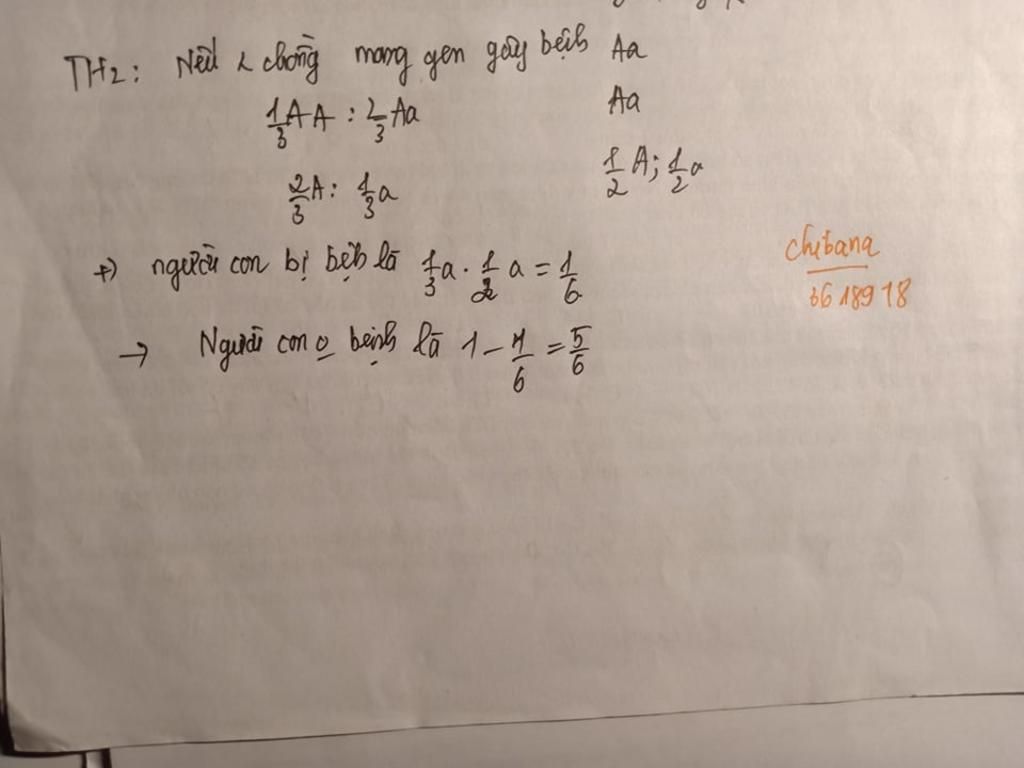 TH2: Nếu chồng mang gen gây bệnh Aa
1/3 AA : 2/3 Aa
Aa
2/3 A : 1/3 a
1/2 A ; 1/2 a
+) người con bị bệnh là 1/3 a . 1/2 a = 1/6
→ Người con o bệnh là 1 - 1/6 = 5/6
chibana